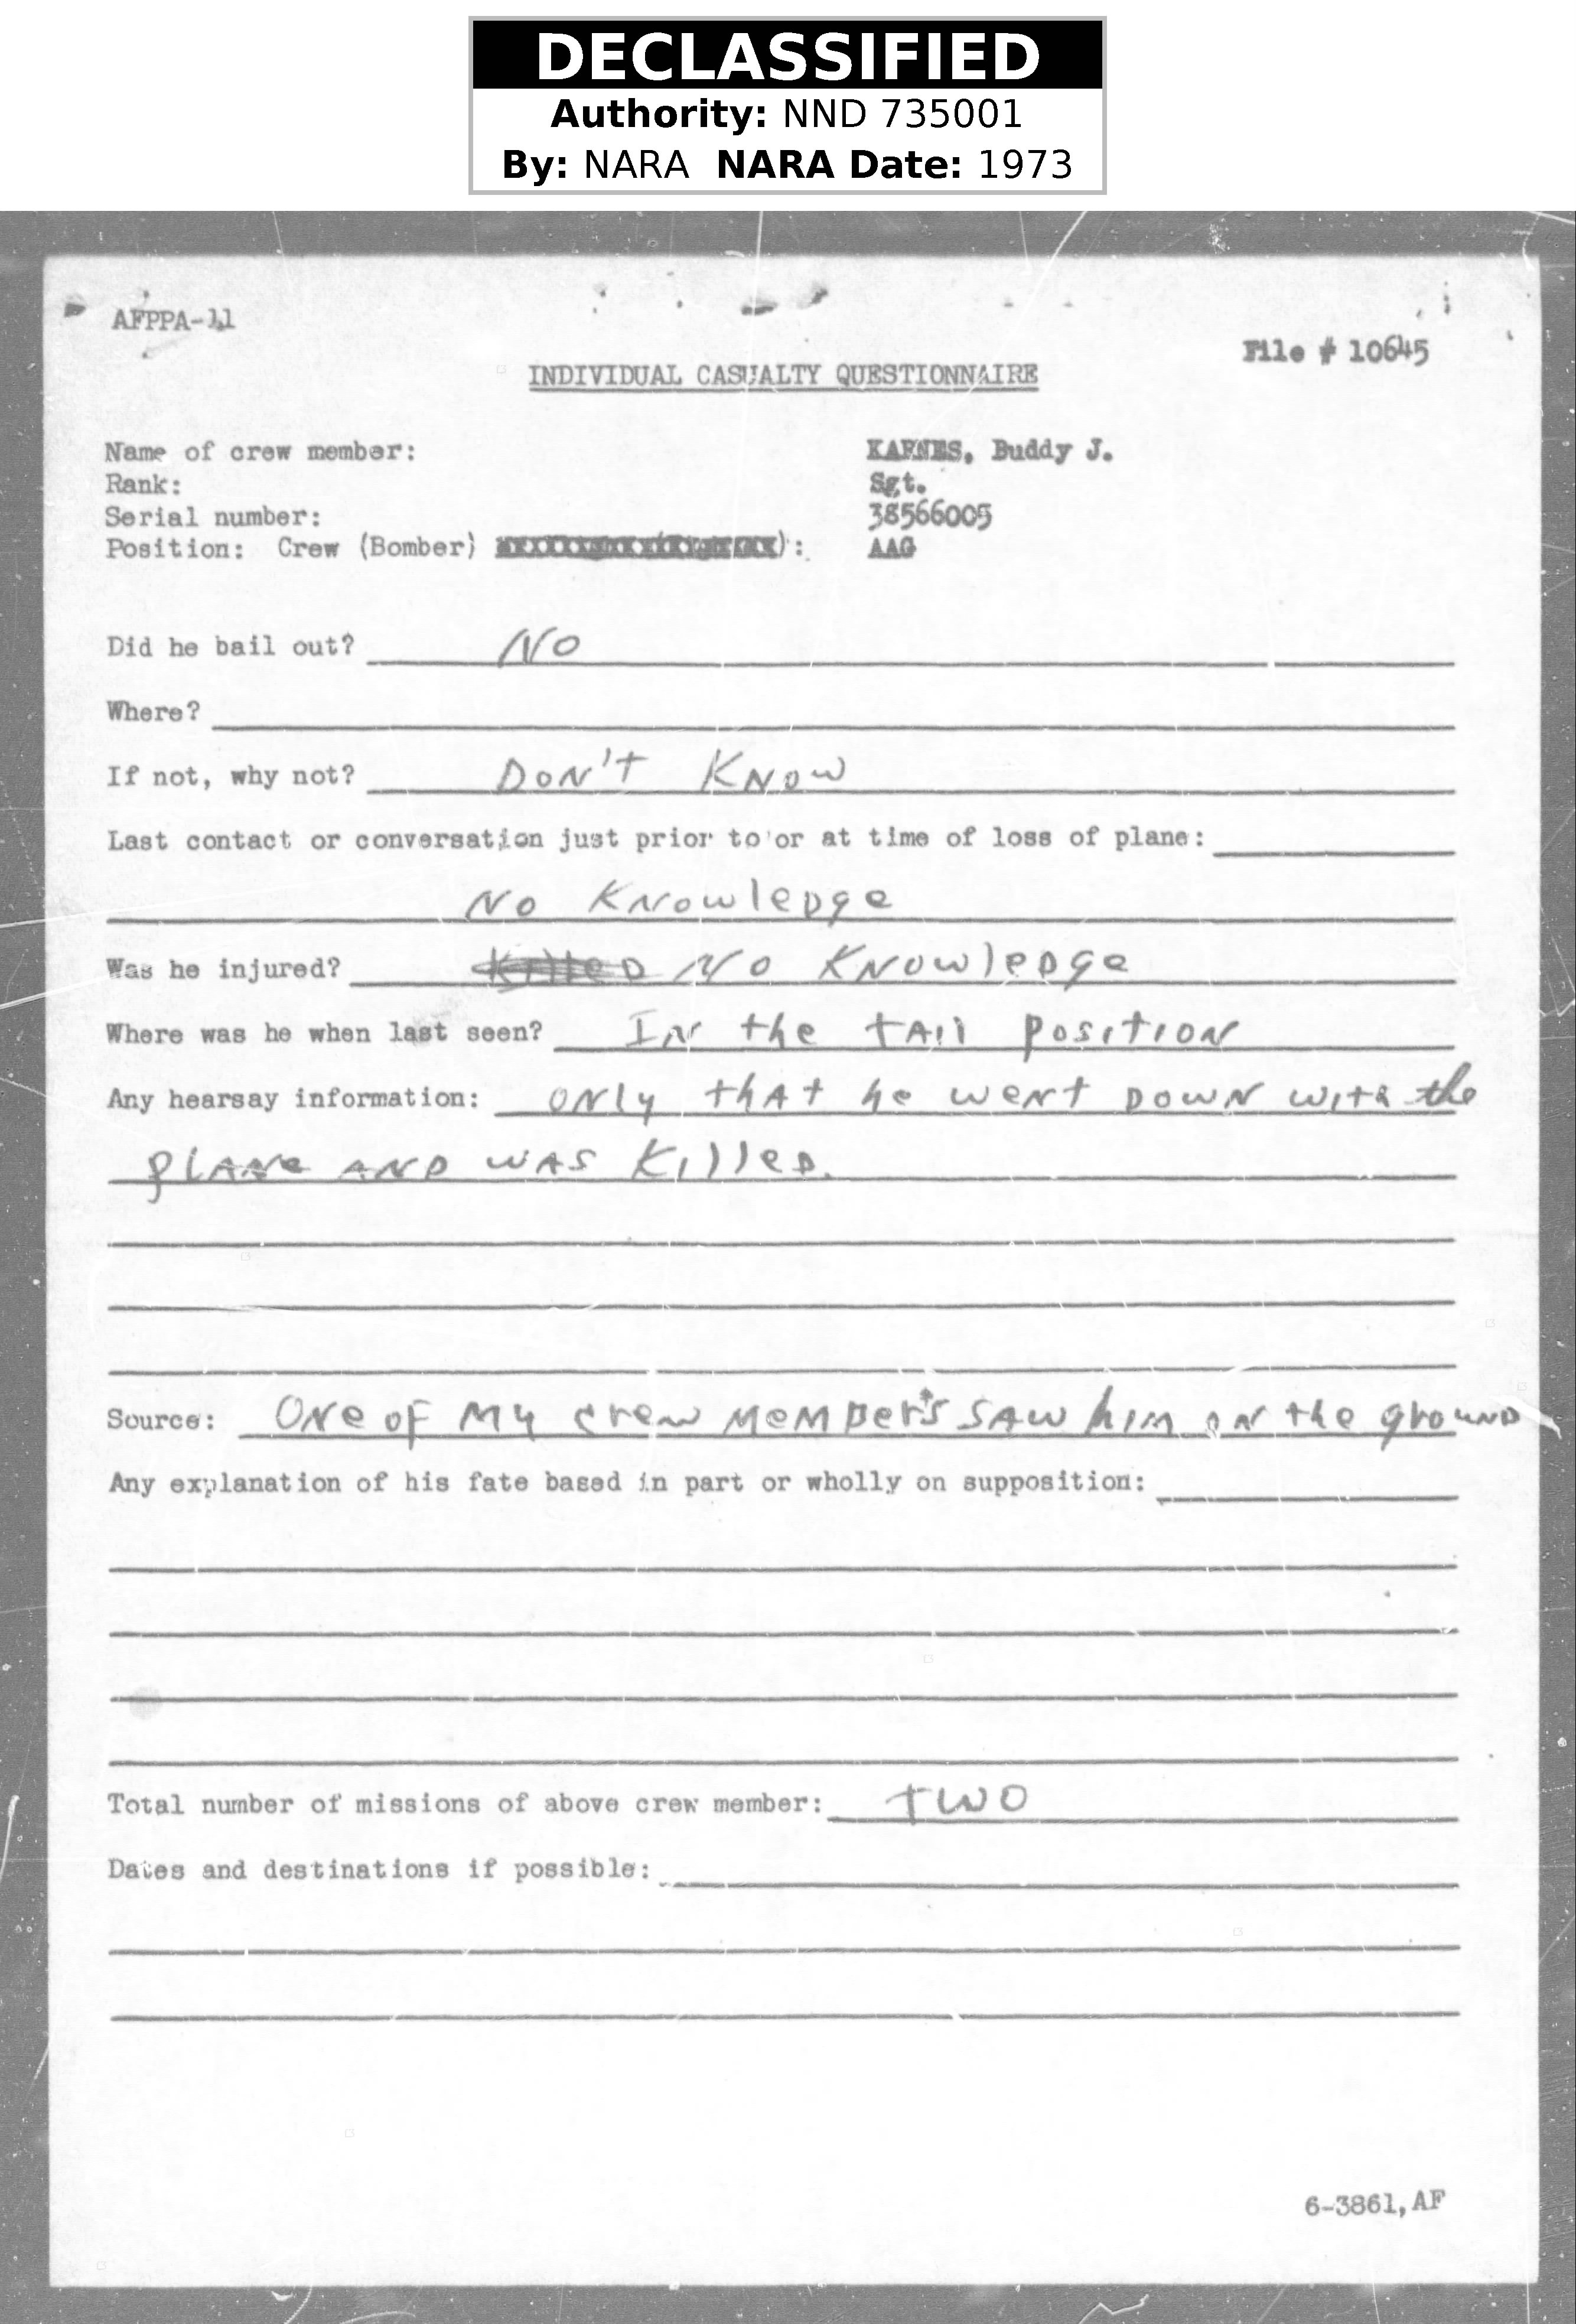 DECLASSIFIED
Authority: NND 735001
By: NARA NARA Date: 1973
AFPPA-11
File # 10645
INDIVIDUAL CASUALTY QUESTIONNAIRE
Name of crew member: KARNES, Buddy J.
Rank: Sgt.
Serial number: 38566005
Position: Crew (Bomber) : AAG
Did he bail out? No
Where?
If not, why not? DON'T KNOW
Last contact or conversation just prior to or at time of loss of plane:
No Knowledge
Was he injured? Killed No Knowledge
Where was he when last seen? IN the tAil position
Any hearsay information: ONly thAt he weNt DOWN with the
plANe AND WAS Killed.
Source: ONe oF My crew MeMber's SAW him ON the grouND
Any explanation of his fate based in part or wholly on supposition:
Total number of missions of above crew member: TWO
Dates and destinations if possible:
6-3861, AF